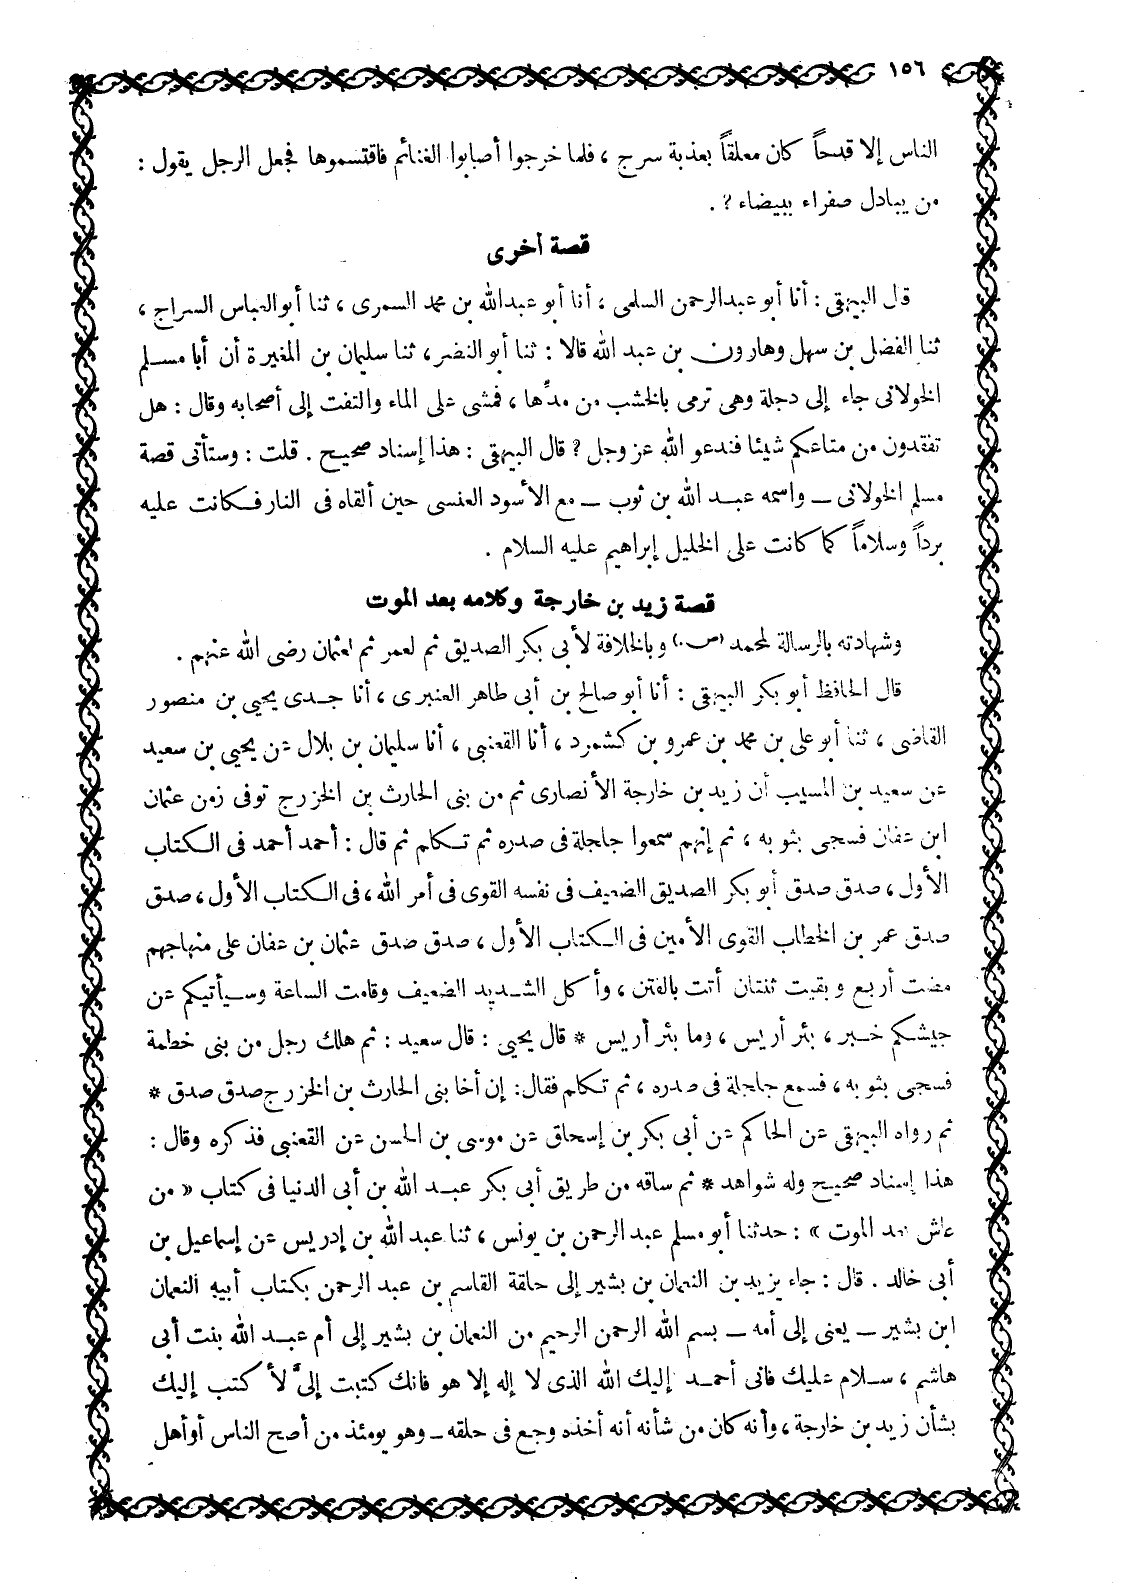 ١٥٦
الناس إلا قدحاً كان معلقاً بعذبة سرج ، فلما خرجوا أصابوا الغنائم فاقتسموها فجعل الرجل يقول :
من يبادل صفراء ببيضاء ? .
قصة أخرى
قال البيهقى : أنا أبو عبدالرحمن السلمى ، أنا أبو عبدالله بن محمد السمرى ، ثنا أبوالعباس السراج ،
ثنا الفضل بن سهل وهارون بن عبد الله قالا : ثنا أبو النضر ، ثنا سليمان بن المغيرة أن أبا مسلم
الخولانى جاء إلى دجلة وهى ترمى بالخشب من مدّها ، فمشى على الماء والتفت إلى أصحابه وقال : هل
تفقدون من متاعكم شيئا فندعو الله عز وجل ? قال البيهقى : هذا إسناد صحيح . قلت : وستأتى قصة
مسلم الخولانى ــ واسمه عبد الله بن ثوب ــ مع الأسود العنسى حين ألقاه فى النار فكانت عليه
برداً وسلاماً كما كانت على الخليل إبراهيم عليه السلام .
قصة زيد بن خارجة وكلامه بعد الموت
وشهادته بالرسالة لمحمد (ص.) وبالخلافة لأبى بكر الصديق ثم لعمر ثم لعثمان رضى الله عنهم .
قال الحافظ أبو بكر البيهقى : أنا أبو صالح بن أبى طاهر العنبرى ، أنا جدى يحيى بن منصور
القاضى ، ثنا أبو على بن محمد بن عمرو بن كشمرد ، أنا القعنبى ، أنا سليمان بن بلال عن يحيى بن سعيد
عن سعيد بن المسيب أن زيد بن خارجة الأنصارى ثم من بنى الحارث بن الخزرج توفى زمن عثمان
ابن عفان فسجى بثوبه ، ثم إنهم سمعوا جلجلة فى صدره ثم تكلم ثم قال : أحمد أحمد فى الكتاب
الأول ، صدق صدق أبو بكر الصديق الضعيف فى نفسه القوى فى أمر الله ، فى الكتاب الأول ، صدق
صدق عمر بن الخطاب القوى الأمين فى الكتاب الأول ، صدق صدق عثمان بن عفان على منهاجهم
مضت أربع وبقيت ثنتان أتت بالفتن ، وأكل الشديد الضعيف وقامت الساعة وسيأتيكم عن
جيشكم خبر ، بئر أريس ، وما بئر أريس * قال يحيى : قال سعيد : ثم هلك رجل من بنى خطمة
فسجى بثوبه ، فسمع جلجلة فى صدره ، ثم تكلم فقال: إن أخا بنى الحارث بن الخزرج صدق صدق *
ثم رواه البيهقى عن الحاكم عن أبى بكر بن إسحاق عن موسى بن الحسن عن القعنبى فذكره وقال :
هذا إسناد صحيح وله شواهد * ثم ساقه من طريق أبى بكر عبد الله بن أبى الدنيا فى كتاب « من
عاش بعد الموت » : حدثنا أبو مسلم عبد الرحمن بن يونس ، ثنا عبد الله بن إدريس عن إسماعيل بن
أبى خالد . قال : جاء يزيد بن النعمان بن بشير إلى حلقة القاسم بن عبد الرحمن بكتاب أبيه النعمان
ابن بشير ــ يعنى إلى أمه ــ بسم الله الرحمن الرحيم من النعمان بن بشير إلى أم عبد الله بنت أبى
هاشم ، سلام عليك فانى أحمد إليك الله الذى لا إله إلا هو فانك كتبت إلىَّ لأكتب إليك
بشأن زيد بن خارجة ، وأنه كان من شأنه أنه أخذه وجع فى حلقه ــ وهو يومئذ من أصح الناس أو أهل